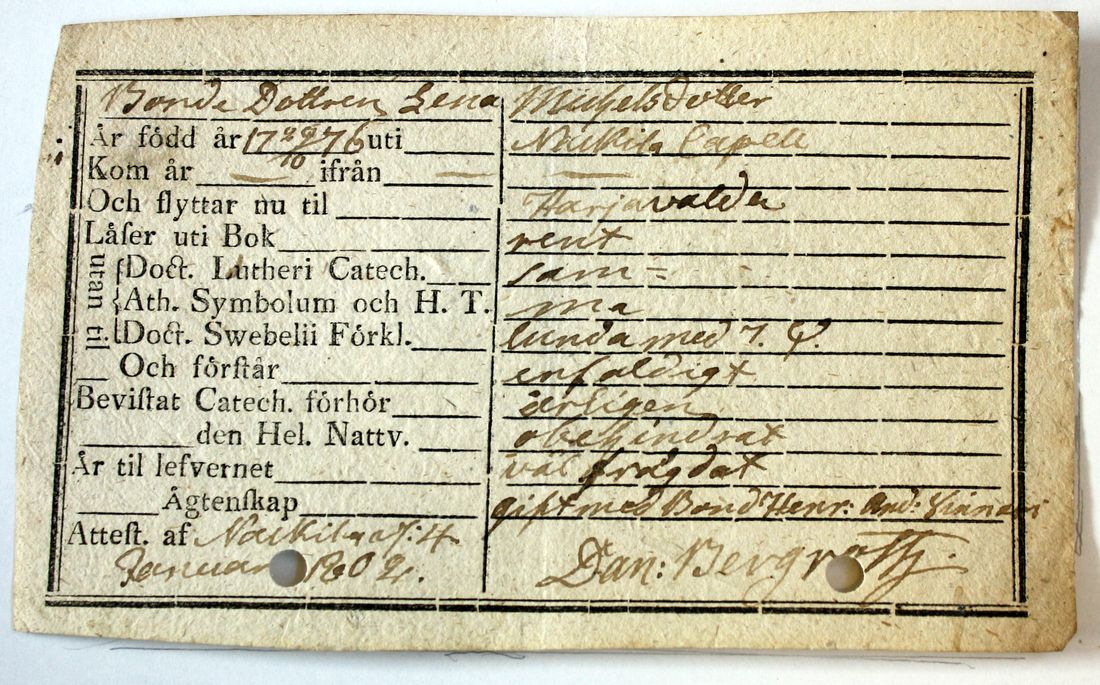 Bonde Dottren Lena Michelsdotter
Är född år 17 29/10 76 uti Nackila Capell
Kom år — ifrån — —
Och flyttar nu til Harjavalda
Låſer uti Bok rent
utan til. {Doct. Lutheri Catech. sam=
Ath. Symbolum och H. T. ma
Doct. Swebelii Förkl. lunda med
Och förſtår enfaldigt
Beviſtat Catech. förhör årligen
den Hel. Nattv. obehindrat
Är til lefvernet väl frägdat
Ägtenſkap gift med Bond Henr: And:
Atteſt. af Nackila d: 4
Januar 1802. Dan: Bergroth.